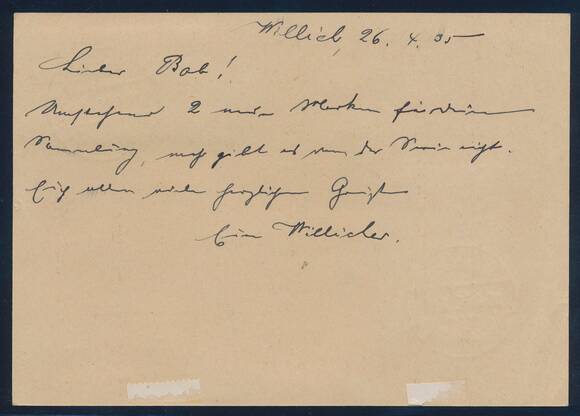 Willich, 26. 4. 35
Lieber Bob!
Umstehend 2 neue Marken für deine
Sammlung, mehr gibt es von der Serie nicht.
Euch allen viele herzlichen Grüße
Ein Willicher.